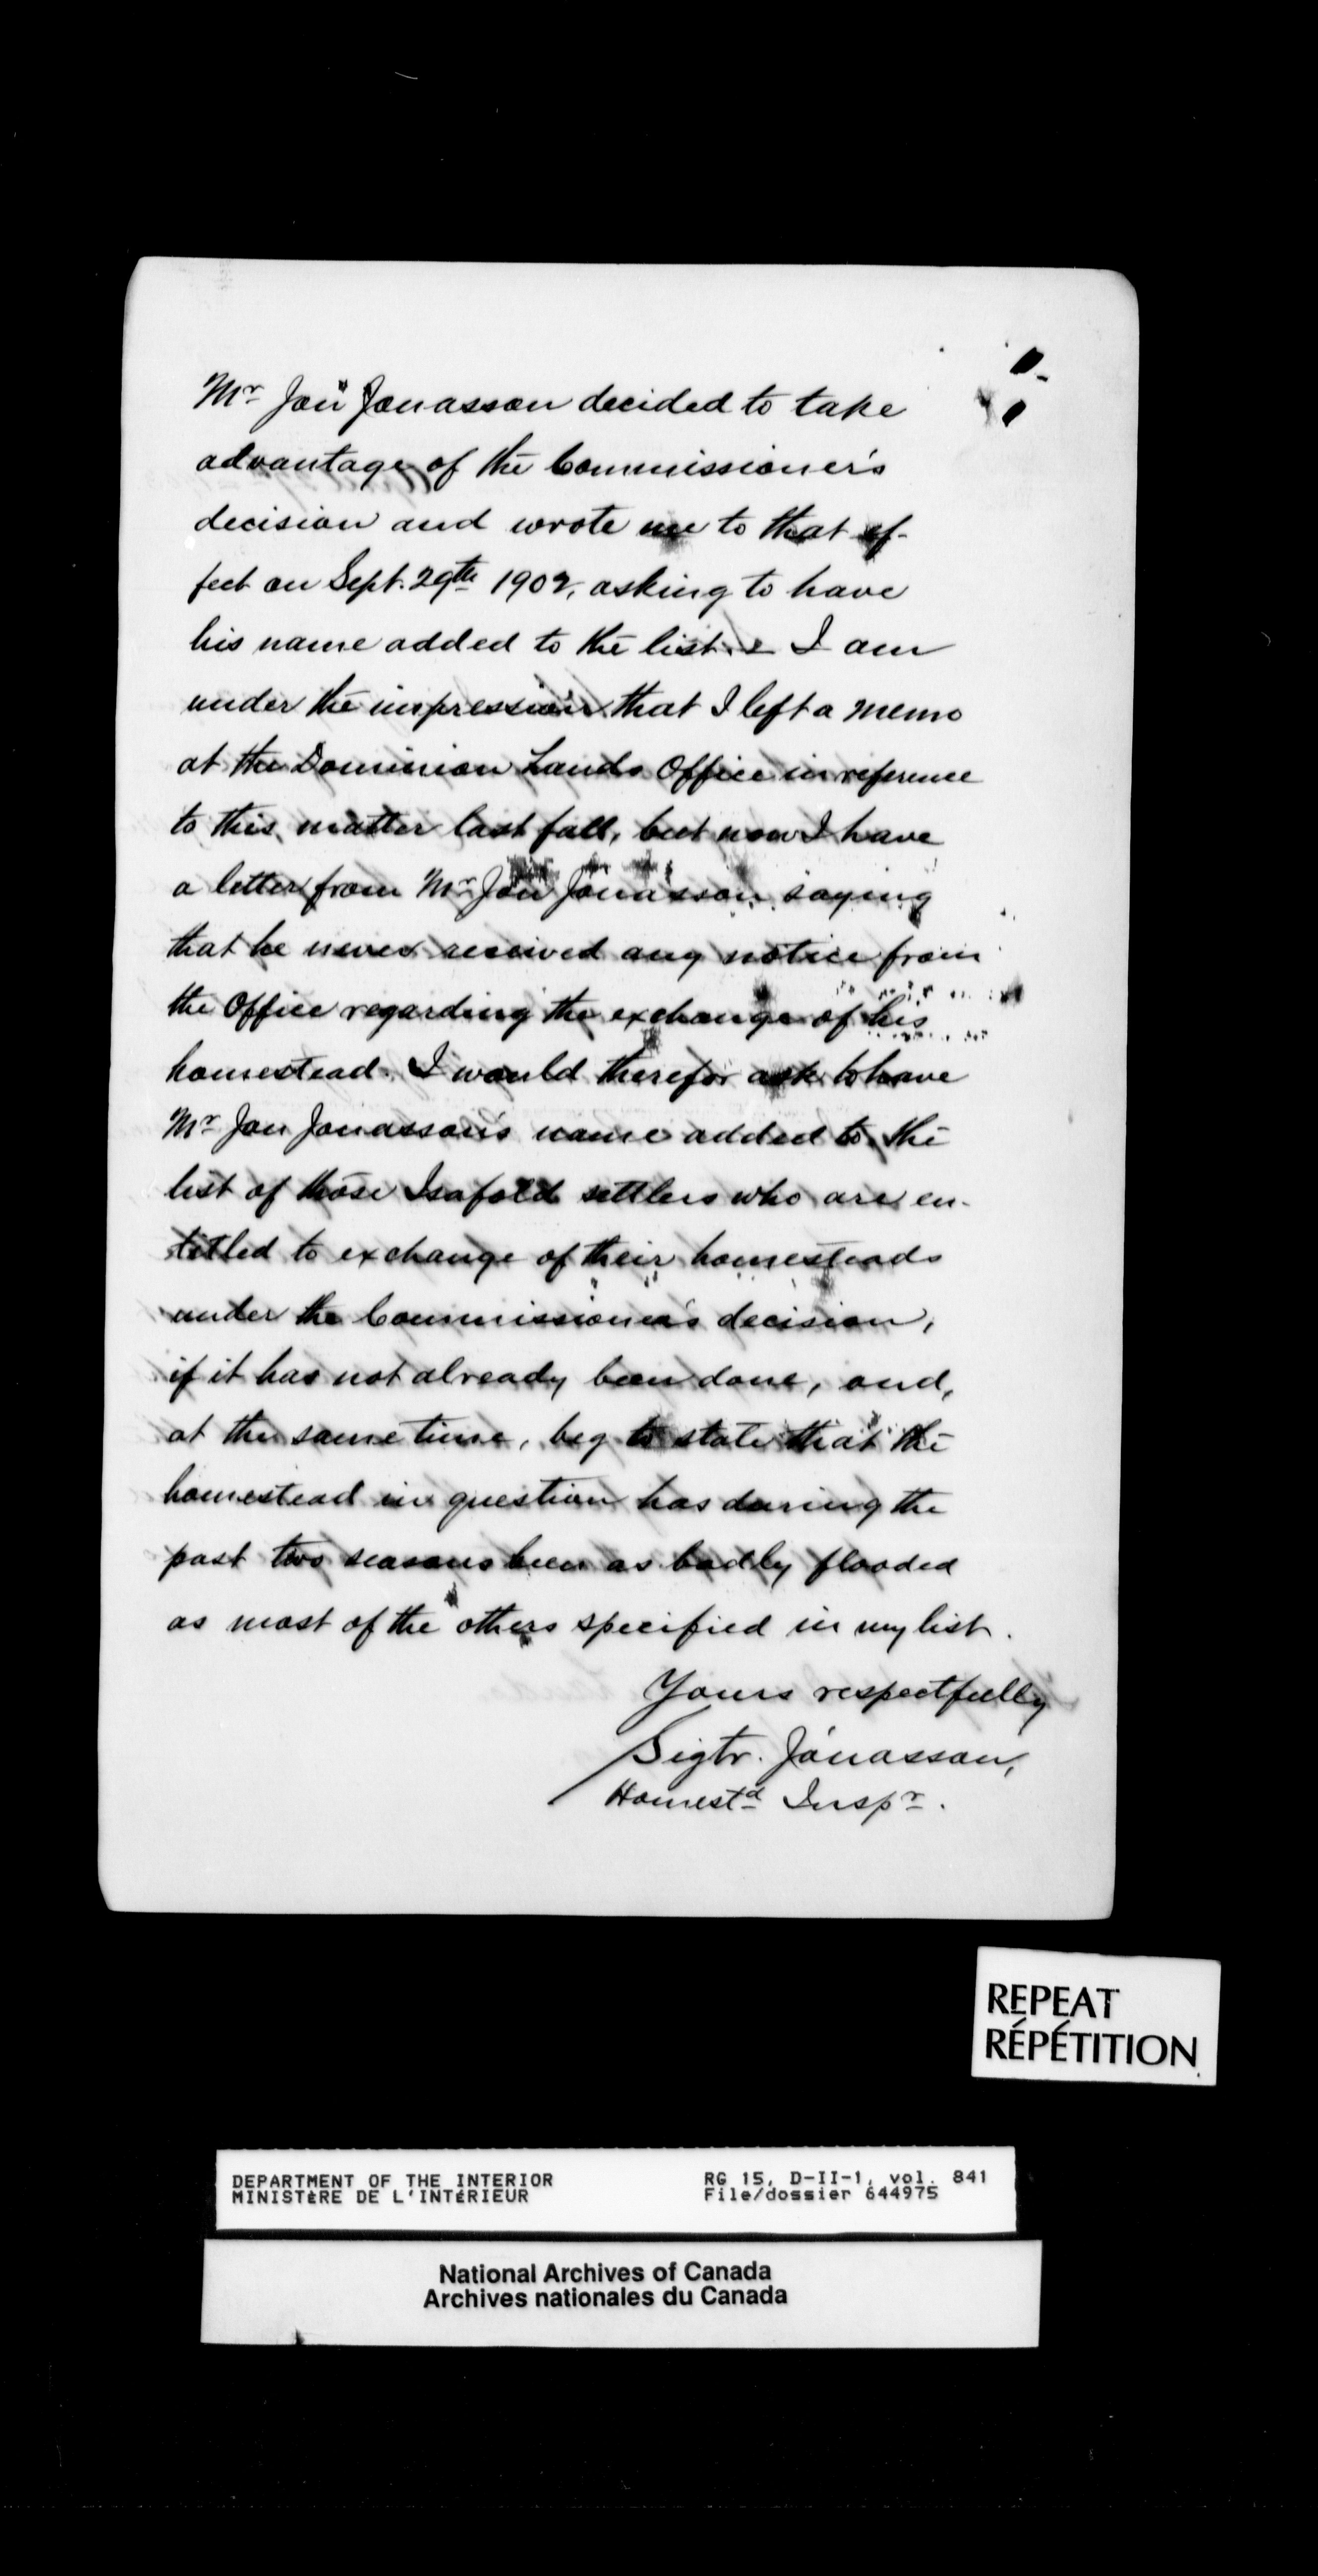 Mr Jón Jónasson decided to take
advantage of the Commissioner's
decision and wrote me to that ef-
fect on Sept. 29th 1902, asking to have
his name added to the list. & I am
under the impression that I left a memo
at the Dominion Lands Office in reference
to this matter last fall, but now I have
a letter from Mr Jón Jónasson saying
that he never received any notice from
the Office regarding the exchange of his
homestead. I would therefor ask to have
Mr Jon Jonasson's name added to the
list of those Isafold settlers who are en-
titled to exchange of their homesteads
under the Commissioner's decision,
if it has not already been done, and,
at the same time, beg to state that the
homestead in question has during the
past two seasons been as badly flooded
as most of the others specified in my list.
Yours respectfully
Sigtr. Jónasson,
Homestd Inspr.
REPEAT
RÉPÉTITION
DEPARTMENT OF THE INTERIOR RG 15, D-II-1, vol. 841
MINISTÈRE DE L'INTÉRIEUR File/dossier 644975
National Archives of Canada
Archives nationales du Canada